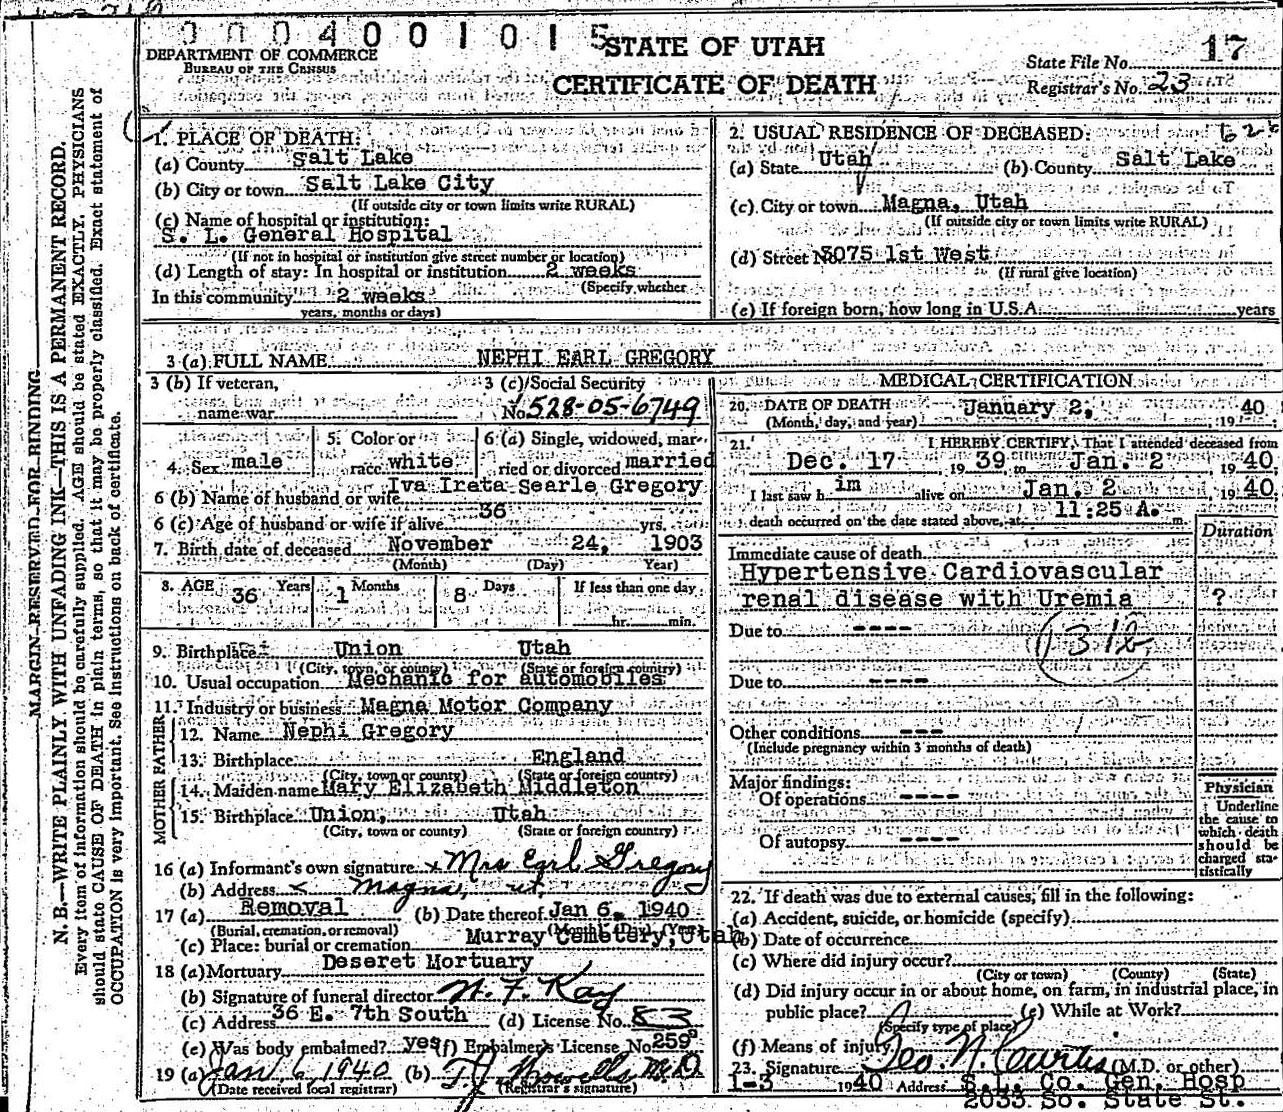 0004001015
DEPARTMENT OF COMMERCE
BUREAU OF THE CENSUS
STATE OF UTAH
CERTIFICATE OF DEATH
State File No. 17
Registrar's No. 23
MARGIN RESERVED FOR BINDING
N. B.—WRITE PLAINLY WITH UNFADING INK—THIS IS A PERMANENT RECORD.
Every item of information should be carefully supplied. AGE should be stated EXACTLY. PHYSICIANS
should state CAUSE OF DEATH in plain terms, so that it may be properly classified. Exact statement of
OCCUPATION is very important. See instructions on back of certificate.
1. PLACE OF DEATH:
(a) County Salt Lake
(b) City or town Salt Lake City
(If outside city or town limits write RURAL)
(c) Name of hospital or institution:
S. L. General Hospital
(If not in hospital or institution give street number or location)
(d) Length of stay: In hospital or institution 2 weeks
(Specify whether
In this community 2 weeks
years, months or days)
2. USUAL RESIDENCE OF DECEASED:
(a) State Utah (b) County Salt Lake
(c) City or town Magna, Utah
(If outside city or town limits write RURAL)
(d) Street No 3075 1st West
(If rural give location)
(e) If foreign born, how long in U.S.A. years
3 (a) FULL NAME NEPHI EARL GREGORY
3 (b) If veteran,
name war
3 (c) Social Security
No. 528-05-6749
4. Sex male
5. Color or
race white
6 (a) Single, widowed, mar-
ried or divorced married
6 (b) Name of husband or wife Iva Ireta Searle Gregory
6 (c) Age of husband or wife if alive 36 yrs.
7. Birth date of deceased November 24, 1903
(Month) (Day) Year)
8. AGE 36 Years 1 Months 8 Days If less than one day
hr. min.
9. Birthplace Union Utah
(City, town, or county) (State or foreign country)
10. Usual occupation Mechanic for automobiles
11. Industry or business Magna Motor Company
FATHER
12. Name Nephi Gregory
13. Birthplace England
(City, town or county) (State or foreign country)
MOTHER
14. Maiden name Mary Elizabeth Middleton
15. Birthplace Union, Utah
(City, town or county) (State or foreign country)
16 (a) Informant's own signature x Mrs Earl Gregory
(b) Address x Magna, ut.
17 (a) Removal (b) Date thereof Jan 6, 1940
(Burial, cremation, or removal) (Month) (Day) (Year)
(c) Place: burial or cremation Murray Cemetery, Utah
18 (a) Mortuary Deseret Mortuary
(b) Signature of funeral director N. F. Kay
(c) Address 36 E. 7th South (d) License No. 83
(e) Was body embalmed? yes (f) Embalmer's License No. 259
19 (a) Jan 6 1940 (b) T J Howells M.D.
(Date received local registrar) (Registrar's signature)
MEDICAL CERTIFICATION
20. DATE OF DEATH January 2, 1940
(Month, day, and year)
21. I HEREBY CERTIFY, That I attended deceased from
Dec. 17 1939 to Jan. 2 1940
I last saw him alive on Jan. 2 1940
death occurred on the date stated above, at 11:25 A. m.
Duration
Immediate cause of death
Hypertensive Cardiovascular
renal disease with Uremia ?
Due to ----
131b
Due to ----
Other conditions ---
(Include pregnancy within 3 months of death)
Major findings:
Of operations ----
Of autopsy ----
Physician
Underline
the cause to
which death
should be
charged sta-
tistically
22. If death was due to external causes, fill in the following:
(a) Accident, suicide, or homicide (specify)
(b) Date of occurrence
(c) Where did injury occur?
(City or town) (County) (State)
(d) Did injury occur in or about home, on farm, in industrial place, in
public place? (e) While at Work?
(Specify type of place)
(f) Means of injury
23. Signature Geo. N. Curtis (M.D. or other)
1-3 1940 Address S.L. Co. Gen. Hosp
2033 So. State St.